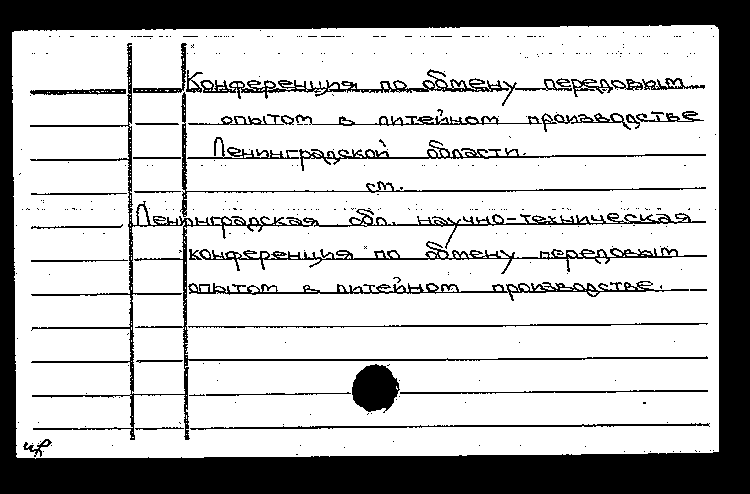 Конференция по обмену передовым
опытом в литейном производстве
Ленинградской области.
см.
Ленинградская обл. научно-техническая
конференция по обмену передовым
опытом в литейном производстве.